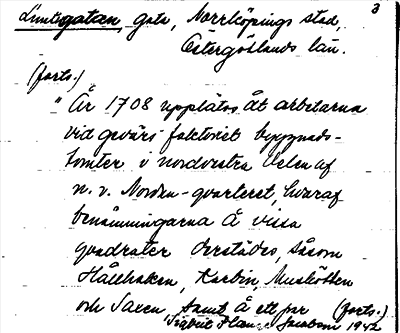 3
Luntgatan, gata, Norrköpings stad,
Östergötlands län.
(forts.)
"År 1708 upplätos åt arbetarna
vid gevärsfaktoriet byggnads-
tomter i nordvestra delen af
n. v. Norden-qvarteret, hvaraf
benämningarna å vissa
qvadrater derstädes, såsom
Hållhaken, Karbin, Muskötten
och Saxen, samt å ett par (forts.)
1942